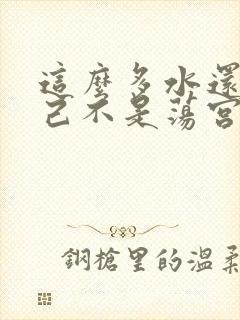 這麼多水還
己不是蕩宮
鋼槍里的溫柔